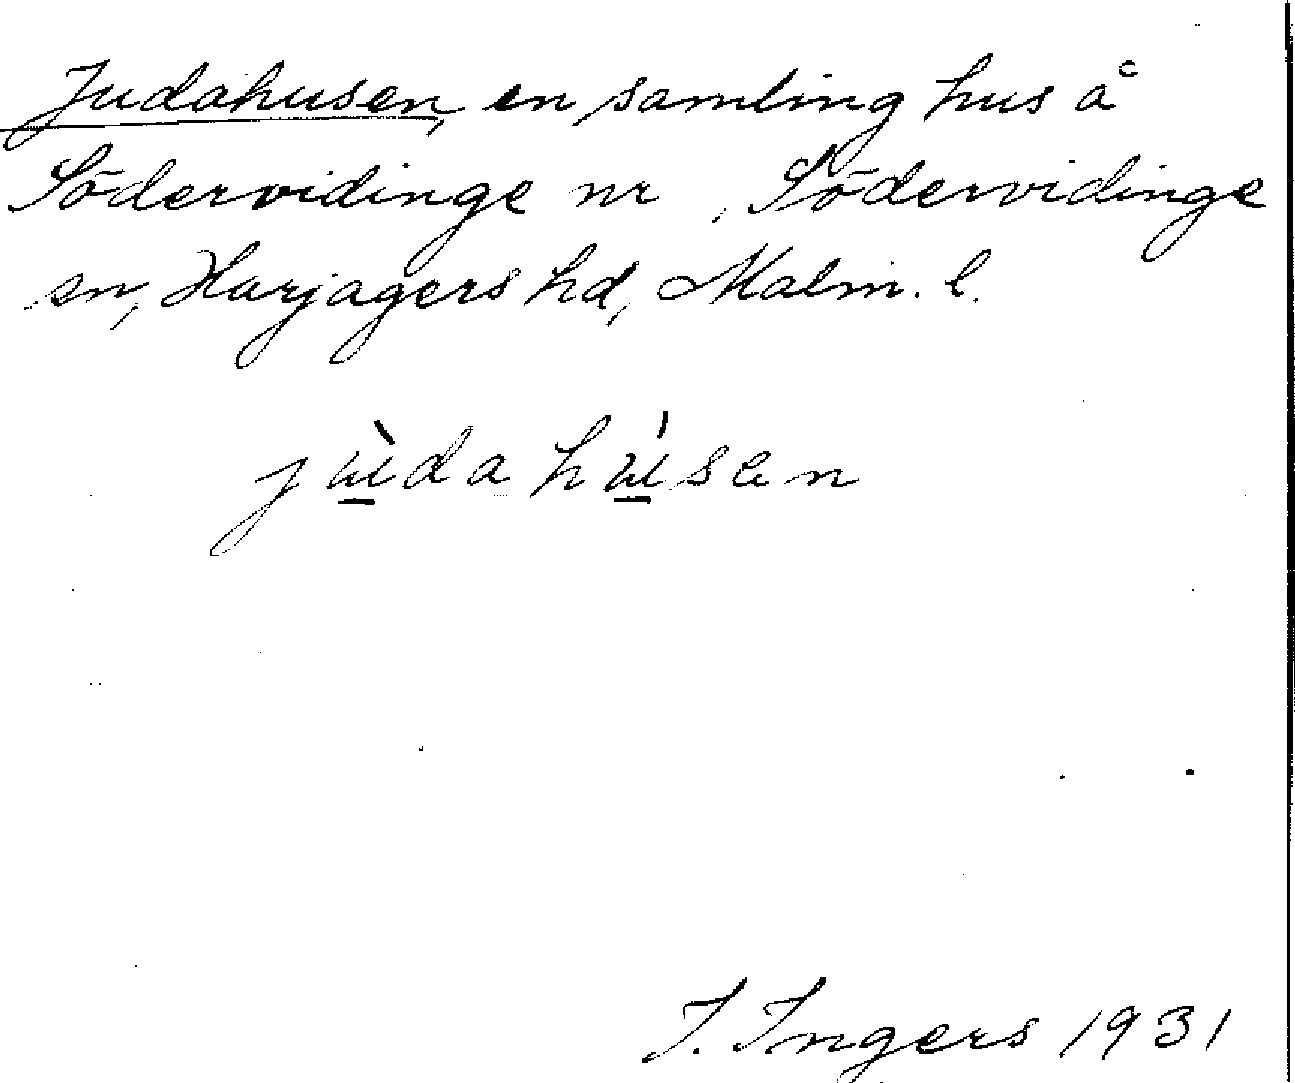 Judahusen, en samling hus å
Södervidinge nr , Södervidinge
sn, Harjagers hd, Malm. l.
jùdahúsen
I. Ingers 1931